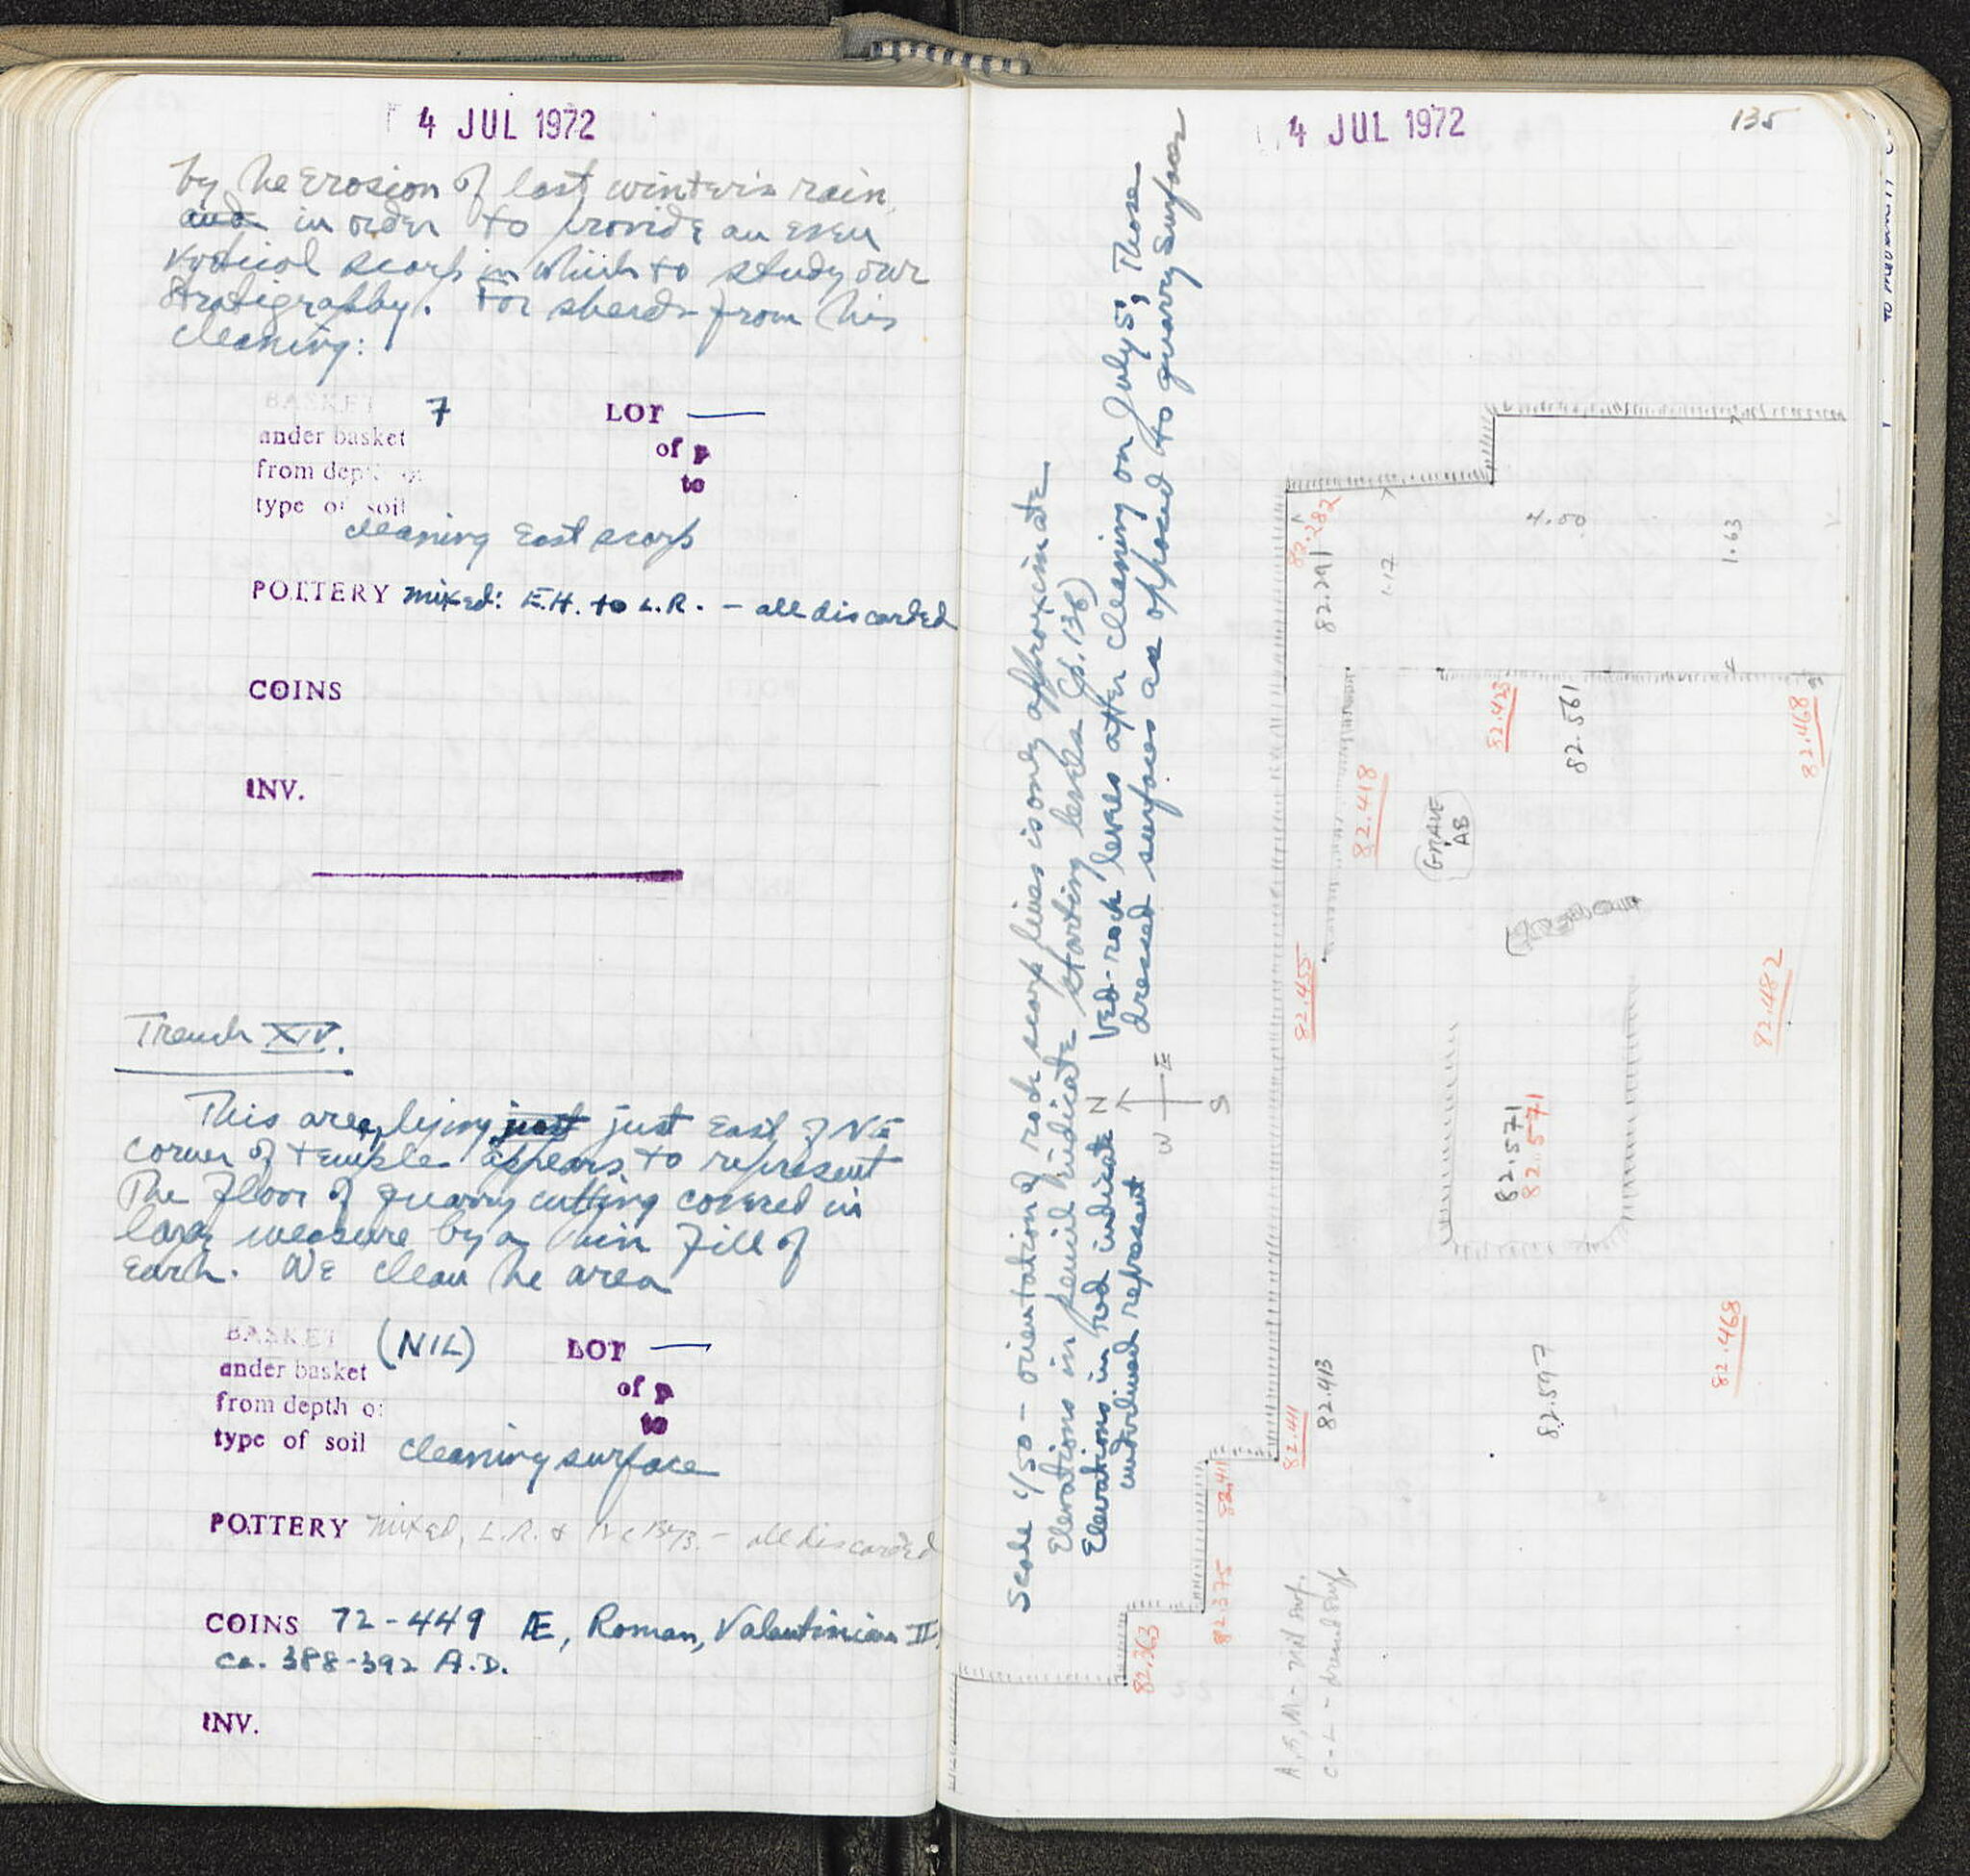 4 JUL 1972
by the erosion of last winter's rain
and in order to provide an even
vertical scarp in which to study our
stratigraphy. For sherds from this
cleaning:
BASKET 7 LOT —
under basket of p
from depth of to
type of soil
cleaning East scarp
POTTERY mixed: E.H. to L.R. - all discarded
COINS
INV.
Trench XIV.
This area, lying just just East of NE
corner of temple appears to represent
The floor of quarry cutting covered in
large measure by a thin fill of
Earth. We clean the area
BASKET (NIL) LOT —
under basket of p
from depth of to
type of soil
cleaning surface
POTTERY mixed, L.R. & - all discarded
COINS 72-449 Æ, Roman, Valentinian II
ca. 388-392 A.D.
INV.
4 JUL 1972
135
Scale 1/50 - orientation of rock scarp lines is only approximate
Elevations in pencil indicate starting levels (p. 136)
Elevations in red indicate bed-rock levels after cleaning on July 5; Those
underlined represent dressed surfaces as opposed to quarry surfaces
N
E
S
W
82.282
82.291
1.12
4.00
1.63
82.423
82.561
82.468
82.418
GRAVE
AB
82.455
82.482
82.571
82.571
82.468
82.597
82.413
82.441
82.411
82.375
82.363
A, B, M -
C - L - dressed surf.